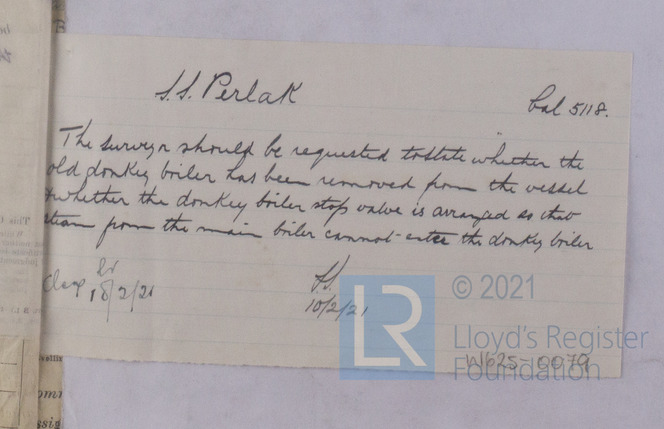 S.S. Perlak
Cal 5118.
The surveyor should be requested to state whether the
old donkey boiler has been removed from the vessel
& whether the donkey boiler stop valve is arranged so that
steam from the main boiler cannot enter the donkey boiler
10/2/21
10/2/21
LR
© 2021
Lloyd's Register
Foundation
W625-0079
This